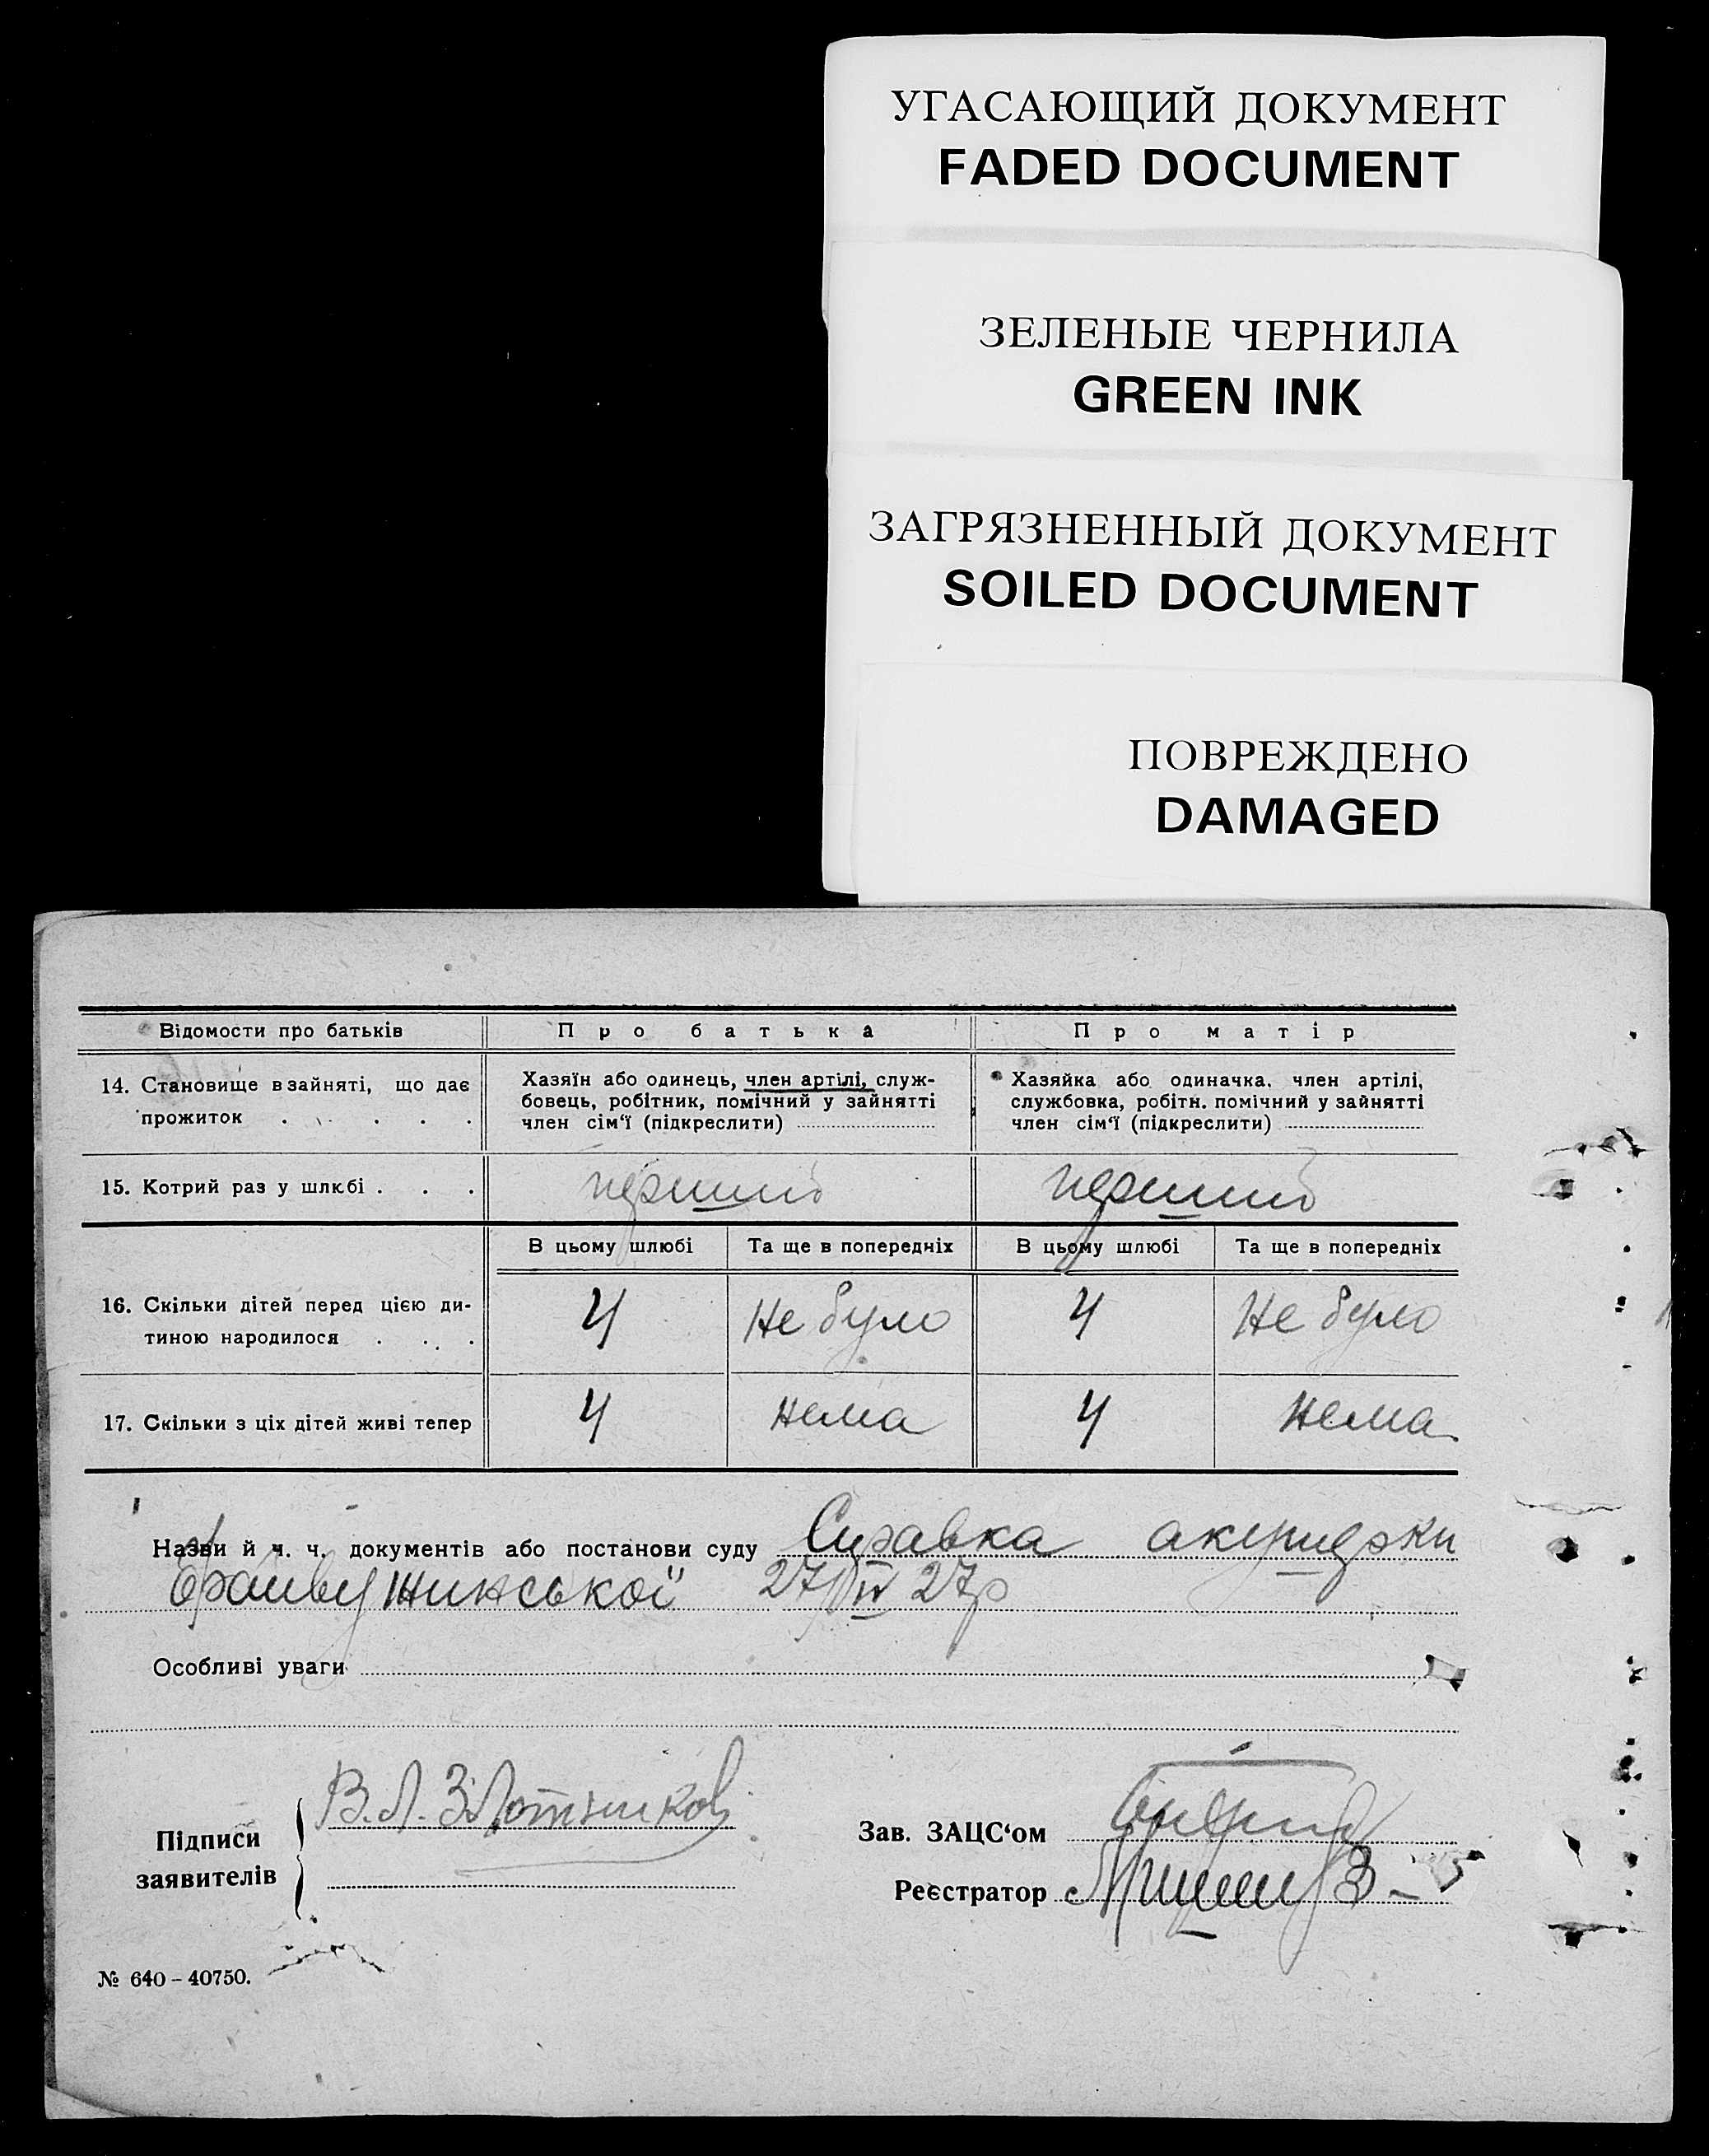 УГАСАЮЩИЙ ДОКУМЕНТ
FADED DOCUMENT
ЗЕЛЕНЫЕ ЧЕРНИЛА
GREEN INK
ЗАГРЯЗНЕННЫЙ ДОКУМЕНТ
SOILED DOCUMENT
ПОВРЕЖДЕНО
DAMAGED
Відомости про батьків Про батька Про матір
14. Становище в зайняті, що дає прожиток . . . . .
Хазяїн або одинець, член артілі, служ-
бовець, робітник, помічний у зайнятті
член сім'ї (підкреслити)
Хазяйка або одиначка, член артілі,
службовка, робітн. помічний у зайнятті
член сім'ї (підкреслити)
15. Котрий раз у шлюбі . . . перший перший
В цьому шлюбі Та ще в попередніх В цьому шлюбі Та ще в попередніх
16. Скільки дітей перед цією ди-
тиною народилося . . . 4 Не було 4 Не було
17. Скільки з ціх дітей живі тепер 4 нема 4 нема
Назви й ч. ч. документів або постанови суду Справка акушерки
27/IV 27р
Особливі уваги
Підписи
заявителів
В. Л. Злотников
Зав. ЗАЦС'ом
Реєстратор
№ 640 – 40750.